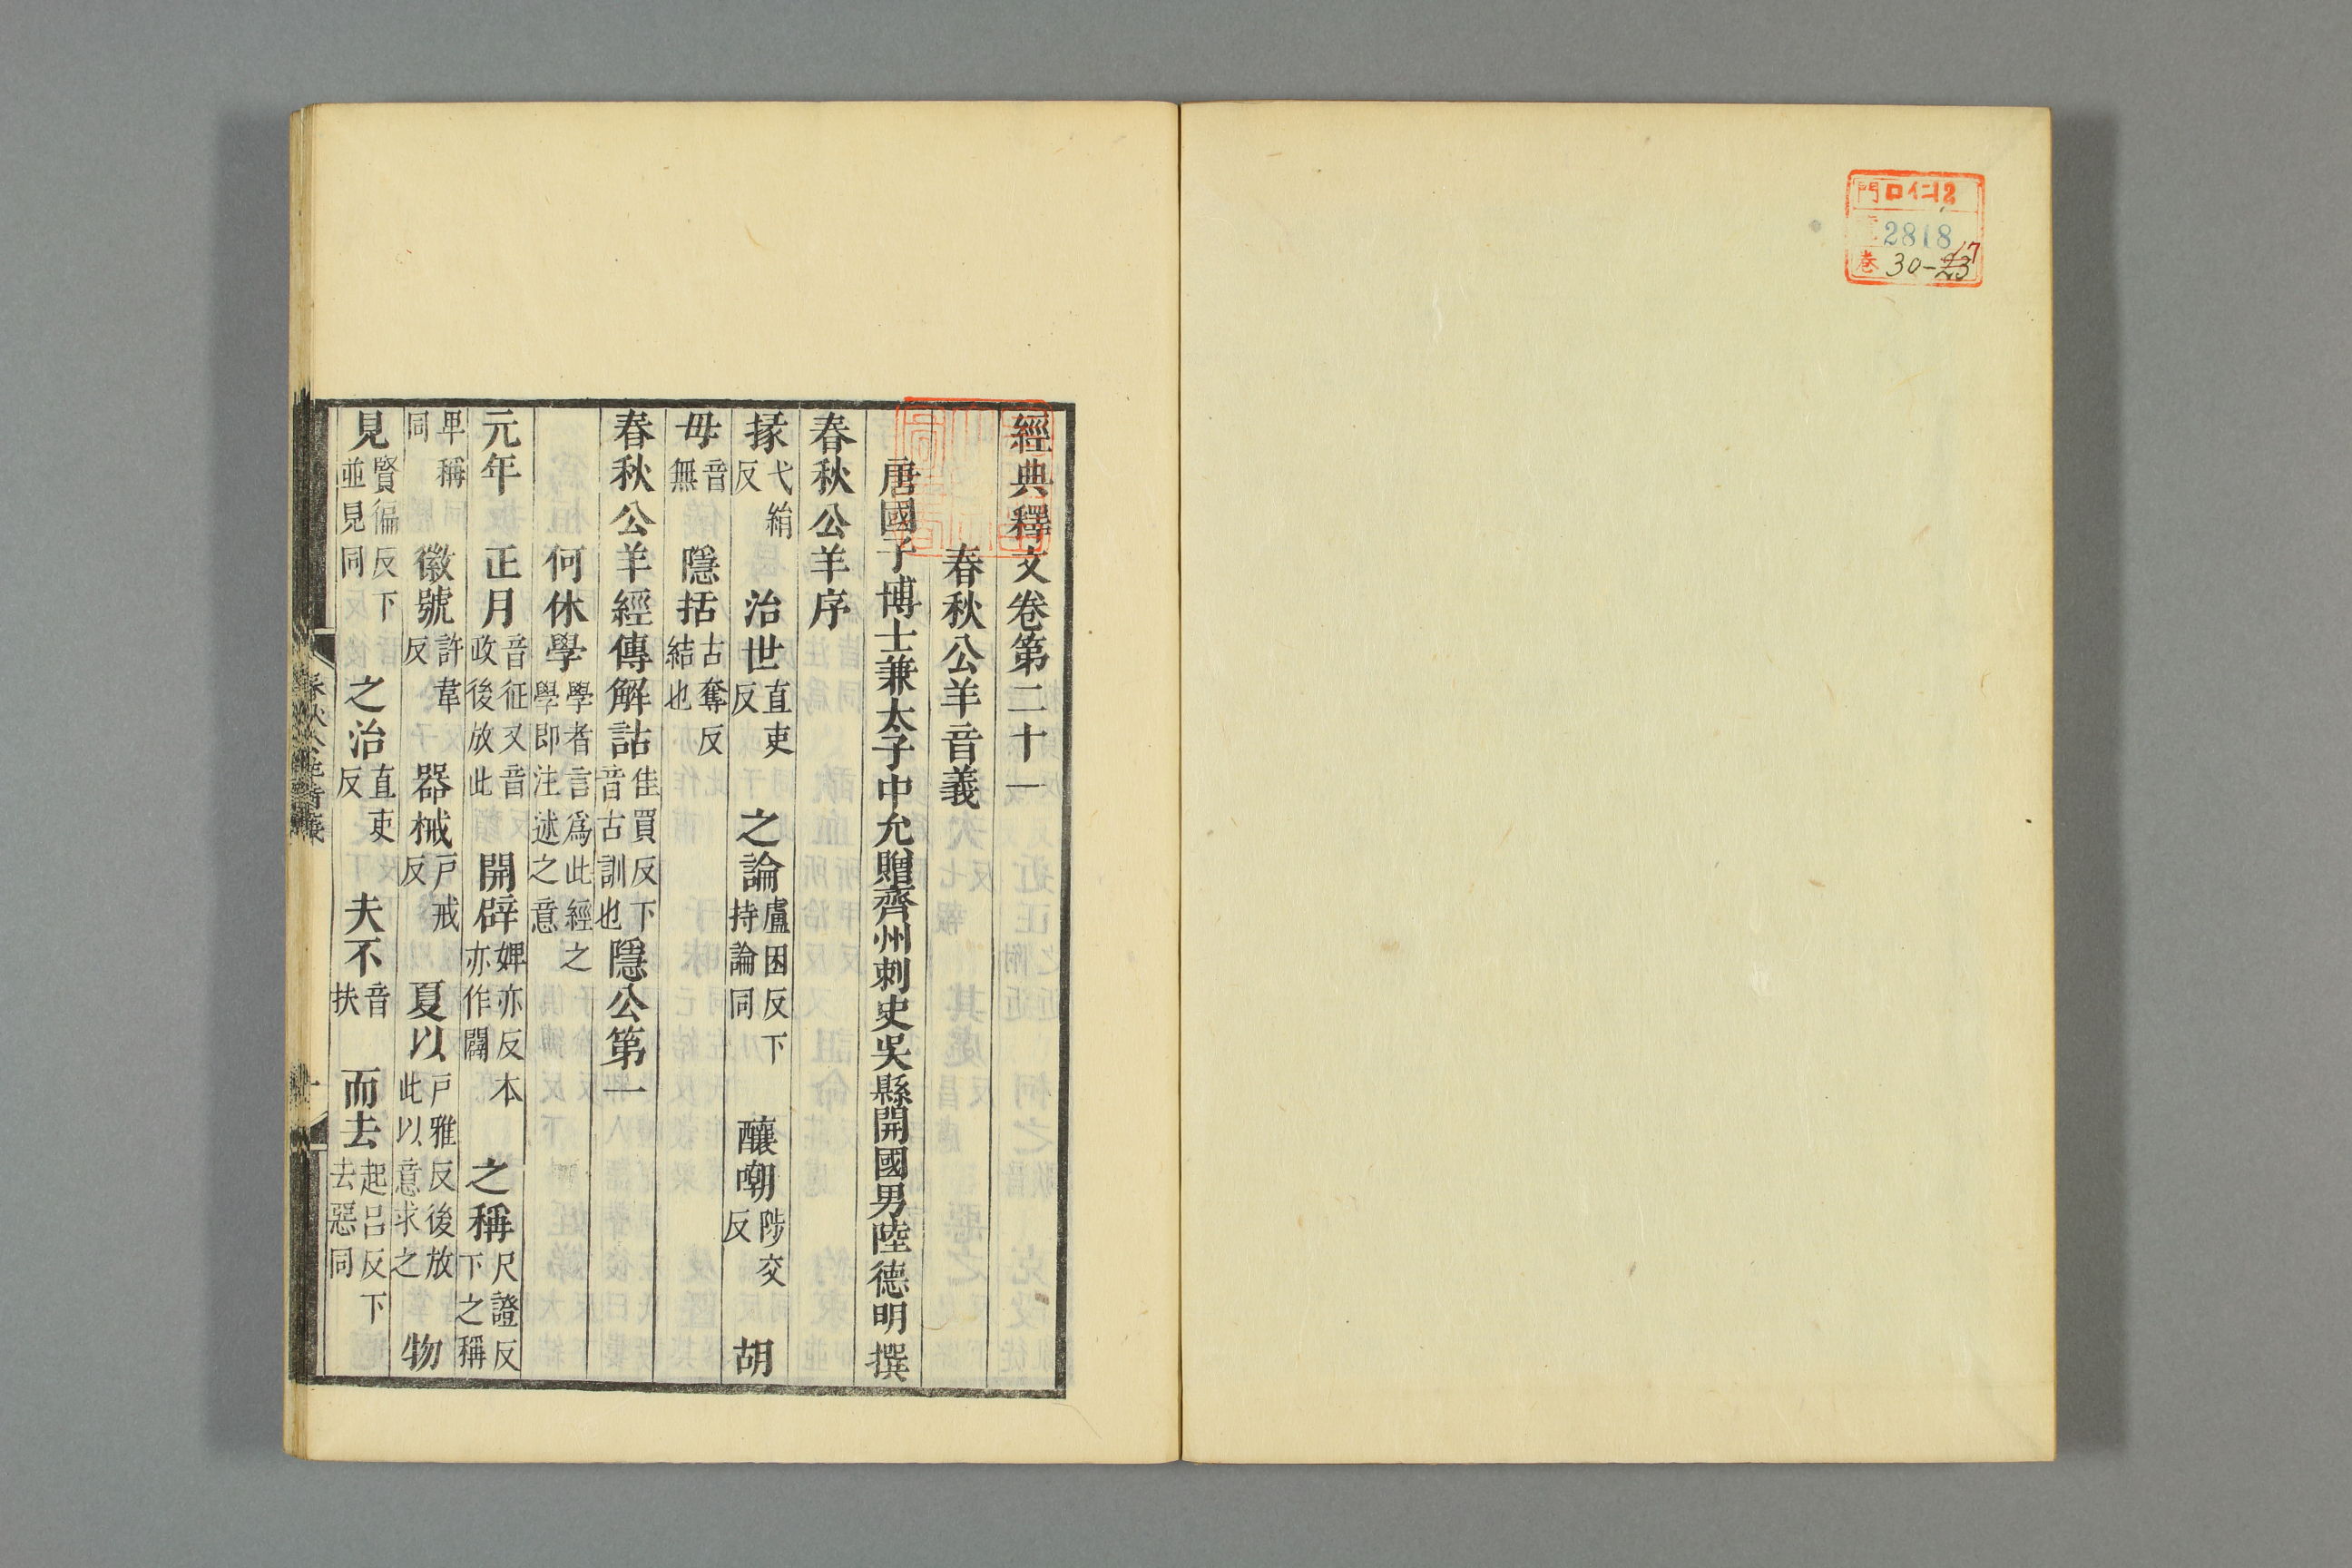 門 口仁12
2818
卷 30-23 17
經典釋文卷第二十一
春秋公羊音義
唐國子博士兼太子中允贈齊州刺史吳縣開國男陸德明撰
春秋公羊序
掾弋絹反 治世直吏反 之論盧困反下持論同 釀嘲陟交反 胡
毋音無 隱括古奪反結也
春秋公羊經傳解詁佳買反下音古訓也隱公第一
何休學學者言爲此經之學即注述之意
元年 正月音征又音政後放此 開辟婢亦反本亦作闢 之稱尺證反下之稱
單稱同 徽號許韋反 器械戸戒反 夏以戸雅反後放此以意求之 物
見賢徧反下並見同 之治直吏反 夫不音扶 而去起呂反下去惡同